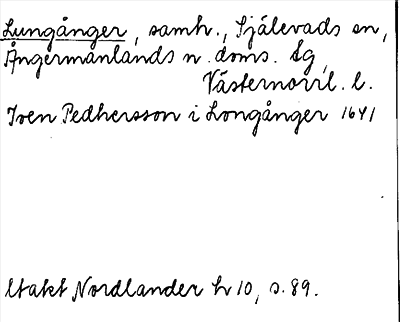 Lungånger, samh., Själevads sn,
Ångermanlands n. doms. sg,
Västernorrl. l.
Iven Pedhersson i Longånger 1641
Utakt Nordlander h 10, s. 89.